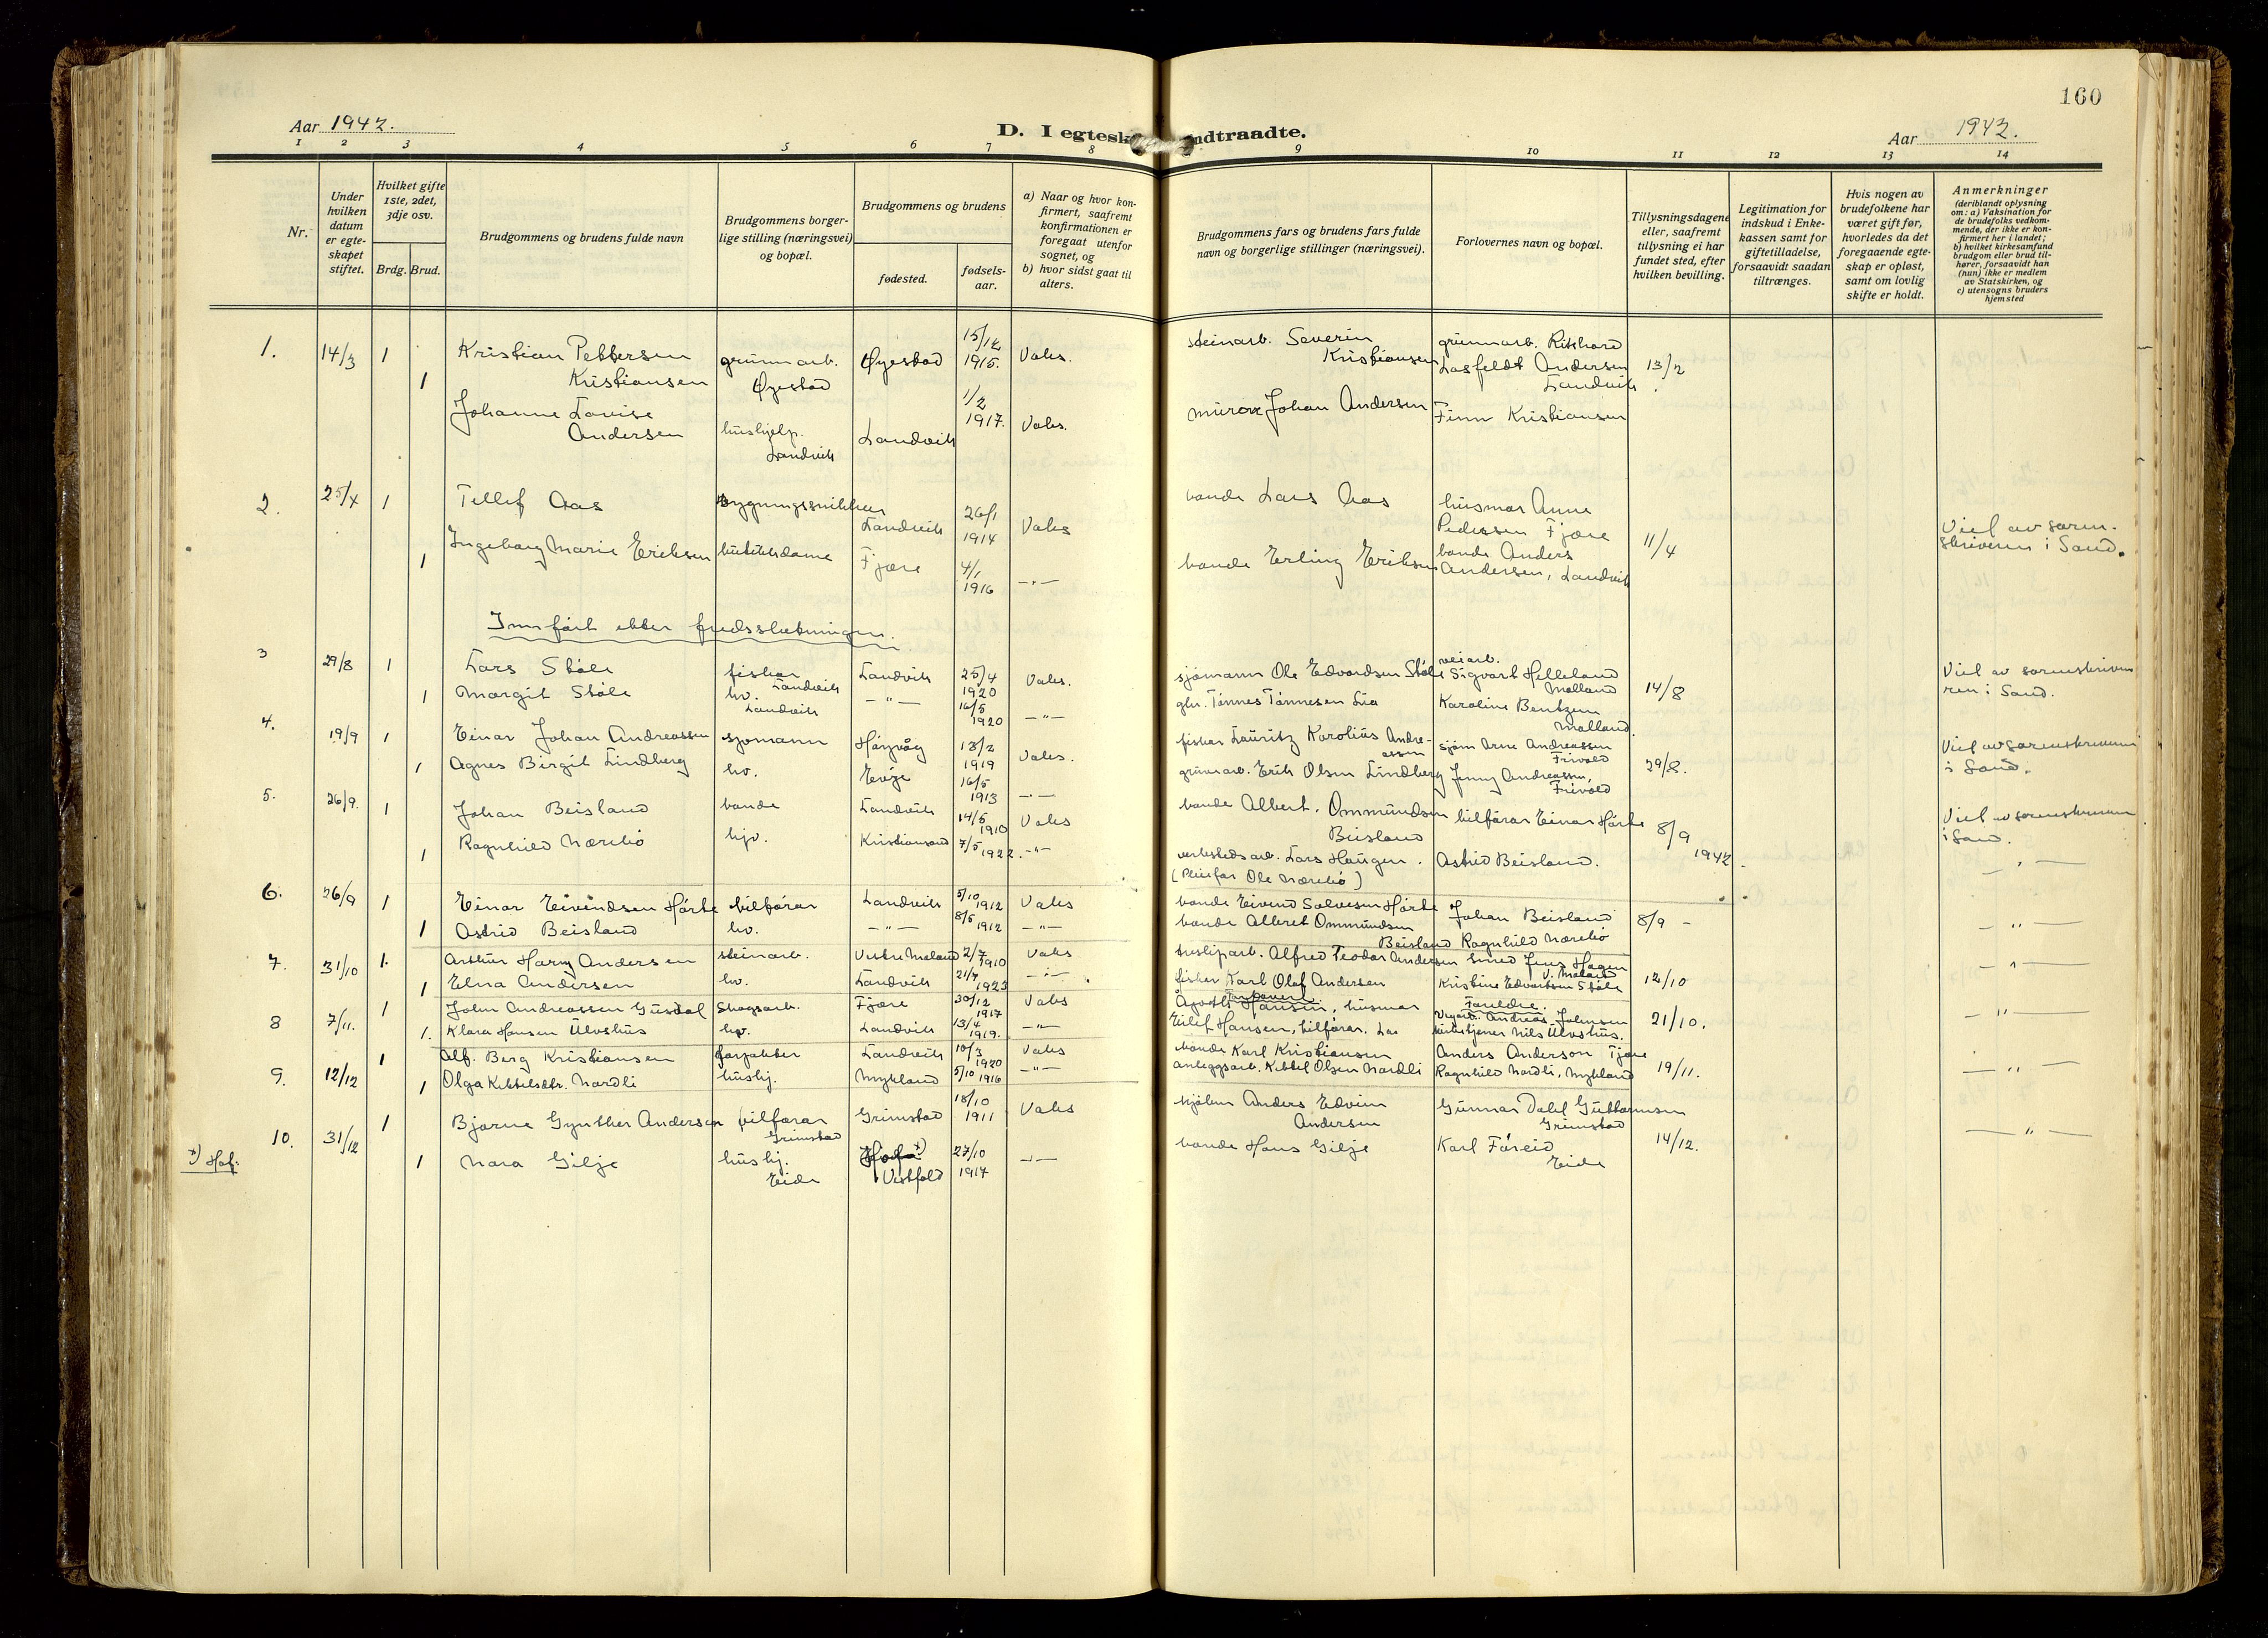 160
Aar 1942.
D. I egtesk
ndtraadte.
Aar 1942.
1 2 3 4 5 6 7 8 9 10 11 12 13 14
Nr.
Under hvilken datum er egte- skapet stiftet.
Hvilket gifte 1ste, 2det, 3dje osv.
Brdg. Brud.
Brudgommens og brudens fulde navn
Brudgommens borger- lige stilling (næringsvei) og bopæl.
Brudgommens og brudens
fødested.
fødsels- aar.
a) Naar og hvor kon- firmert, saafremt konfirmationen er foregaat utenfor sognet, og
b) hvor sidst gaat til alters.
Brudgommens fars og brudens fars fulde navn og borgerlige stillinger (næringsvei).
Forlovernes navn og bopæl.
Tillysningsdagene eller, saafremt tillysning ei har fundet sted, efter hvilken bevilling.
Legitimation for indskud i Enke- kassen samt for giftetilladelse, forsaavidt saadan tiltrænges.
Hvis nogen av brudefolkene har været gift før, hvorledes da det foregaaende egte- skap er opløst, samt om lovlig skifte er holdt.
Anmerkninger (deriblandt oplysning om: a) Vaksination for de brudefolks vedkom- mende, der ikke er kon- firmert her i landet; b) hvilket kirkesamfund brudgom eller brud til- hører, forsaavidt han (hun) ikke er medlem av Statskirken, og c) utensogns bruders hjemsted
1. 14/3 1 Kristian Pettersen Kristiansen grunnarb. Øyestad Øyestad 15/12 1915. Vaks. steinarb. Severin Kristiansen grunnarb. Rikhard Lasfeldt Andersen Landvik 13/2
1 Johanne Lovise Andersen hushjelp. Landvik Landvik 1/2 1917. Vaks. murer Johan Andersen Finn Kristiansen
2. 25/4 1 Tellef Aas bygningssnikker Landvik 26/1 1914 Vaks bonde Lars Aas husmor Anne Pedersen Fjære 11/4 Viet av soren- skriveren i Sand.
1 Ingeborg Marie Eriksen butikkdame Fjære 4/1 1916 —"— bonde Erling Eriksen bonde Anders Andersen, Landvik
Innført etter fredsslutningen.
3 29/8 1 Lars Støle fisker Landvik Landvik 25/4 1920 Vaks. sjømann Ole Edvardsen Støle veiarb. Sigvart Helleland Molland 14/8 Viet av sorenskrive ren i Sand.
1 Margit Støle hv. Landvik —"— 16/5 1920 —"— Tønnes Tønnesen Lia Karoline Bentzen Molland.
4. 19/9 1 Einar Johan Andreassen sjømann Høyvåg 18/2 1919 Vaks. fisker Lauritz Karolius Andre- assen sjøm Arne Andreassen Frivold 29/8. Viet av sorenskriveren i Sand.
1 Agnes Birgit Lindberg hv. 16/5 1913 —"— grunnarb. Erik Olsen Lindberg Jenny Andreassen, Frivold
5. 26/9. 1 Johan Beisland bonde Landvik 14/5 1910 Vaks bonde Albert Ommundsen Beisland bilfører Einar Hørte 8/9 1942. Viet av sorenskriveren i Sand.
1 Ragnhild Nærebø hjv. Kristiansand 7/5 1922. —"— verkstedsarb. Lars Haugen. Astrid Beisland. —"—
(Pleiefar Ole Nærebø)
6. 26/9 1 Einar Eivindsen Hørte bilfører Landvik 5/10 1912 Vaks bonde Eivind Salvesen Hørte Johan Beisland 8/9 - —"—
1 Astrid Beisland hv. —"— 8/5 1912 —"— bonde Albret Ommundsen Beisland Ragnhild Nærebø
7. 31/10 1. Arthur Harry Andersen steinarb. Vestre Moland 2/7 1910 Vaks tresliparb. Alfred Teodor Andersen Smed Jens Hagen V. Moland 12/10 —"—
1 Elna Andersen hv. Landvik 21/7 1923 —"— fisker Karl Olaf Andersen Kristine Edvartsen Støle
8 7/11. 1 John Andreassen Gusdal Skogsarb. Fjære 30/12 1917 Vaks Hansen, husmor Foreldre. Andreas Johnsen 21/10. —"—
1. Klara Hansen Ulvshus hv. Landvik 13/4 1919. —"— Eilef Hansen, bilfører. kirketjener Nils Ulvshus.
9. 12/12 1 Alf. Berg Kristiansen forpakter Landvik 10/3 1920 Vaks bonde Karl Kristiansen Anders Anderson Fjære 19/11. —"—
1 Olga Kittelsdtr. Nordli hushj. Mykland 5/10 1916 —"— anleggsarb. Kittel Olsen Nordli Ragnhild Nordli, Mykland
10. 31/12 1 Bjarne Gynther Andersen bilfører Grimstad Grimstad 18/10 1911 Vaks Anders Edvin Andersen Gunnar Dahl Guttormsen Grimstad 14/12. —"—
x) Hof: 1 Nora Gilje hushj. Eide Hof x) Vestfold 27/10 1914 —"— bonde Hans Gilje Karl Føreid Eide